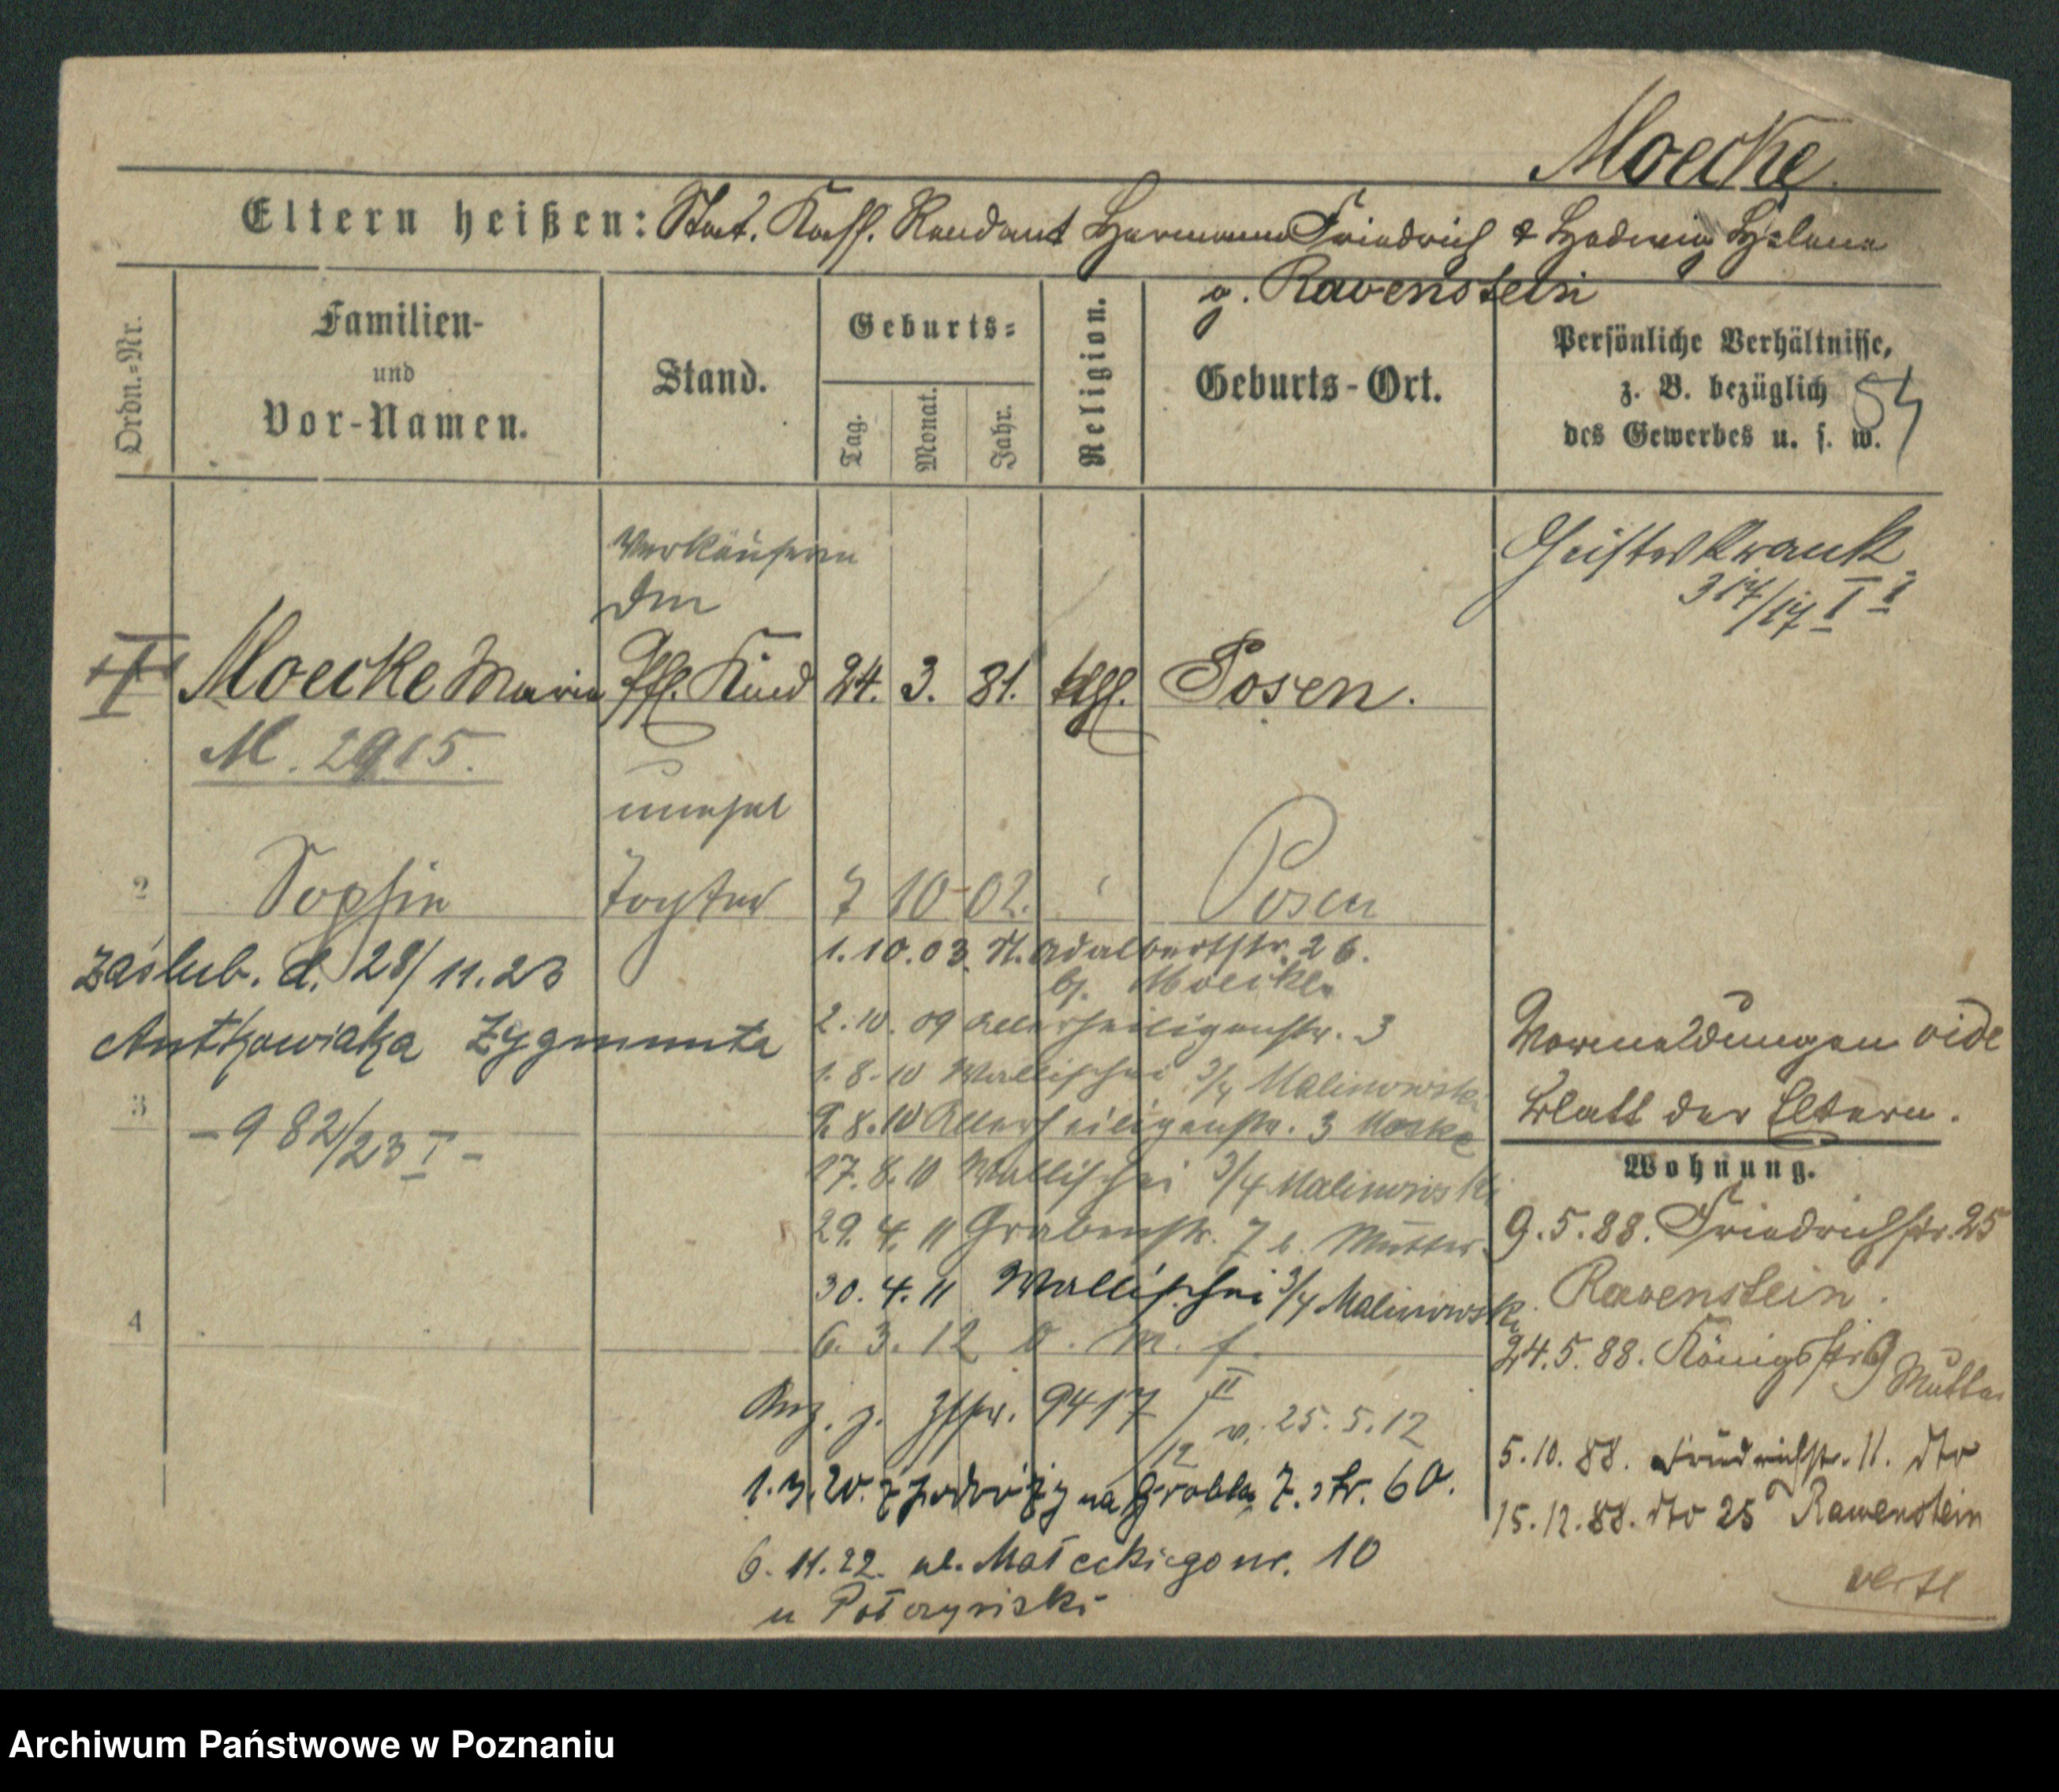 Moecke.
Eltern heißen: Stat. Kass. Rendant Hermann Friedrich & Hedwig Helene
g. Ravenstein
Ordn.-Nr.
Familien-
und
Vor-Namen.
Stand.
Geburts-
Tag.
Monat.
Jahr.
Religion.
Geburts-Ort.
Persönliche Verhältnisse,
z. B. bezüglich
des Gewerbes u. s. w.
Verkäuferin
Geisteskrank
317/17 I
I Moecke Maria Kind 24. 3. 81. Posen.
M. 2915.
unehel
2 Sophie Tochter 7 10 02. Posen
zaślub. d. 28/11.23
Antkowiaka Zygmunta
3
- 982/23 I -
4
1.10.03. St. Adalbertstr. 26.
b/. Moecke
2.10.09 Allerheiligenstr. 3
1.8.10 Wallischei 3/4 Malinowski
9.8.10 Allerheiligenstr. 3 Moeke
17.8.10 Wallischei 3/4 Malinowski
29.4.11 Grabenstr. 7 b. Mutter
30.4.11 Wallischei 3/4 Malinowski
6.3.12 o. m. f.
9417/12 II v. 25.5.12
1.3.20. na Grobla 7. str. 60.
6.11.22. ul. Małeckiego nr. 10
u Połczyński
Vormeldungen vide
Blatt der Eltern.
Wohnung.
9.5.88. Friedrichstr. 25
Ravenstein.
24.5.88. Königsstr 9 Mutter
5.10.88. Friedrichstr. 11. dto
15.12.88. dto 25 Rawenstein
verte
Archiwum Państwowe w Poznaniu